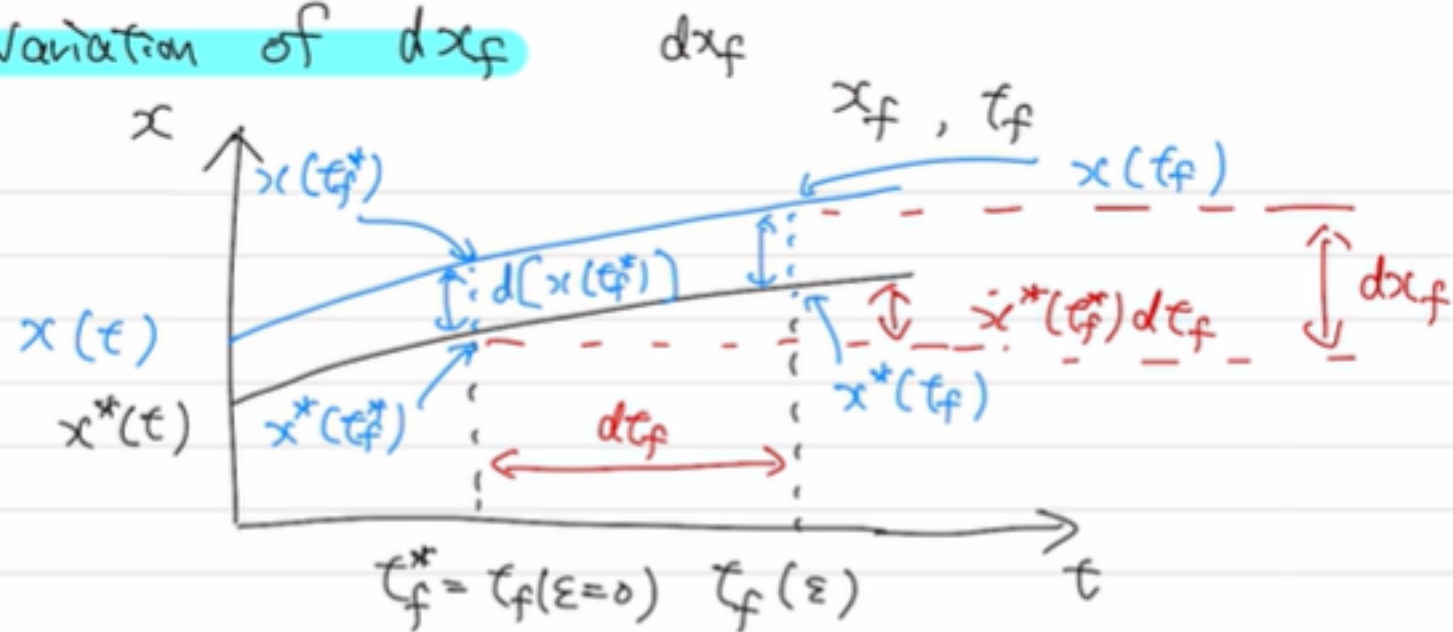 Variation of dx_f    dx_f
x
x_f , t_f
x(t_f^*)
x(t_f)
d[x(t_f^*)]
dx_f
ẋ^*(t_f^*)dt_f
x(t)
x^*(t_f)
x^*(t)
x^*(t_f^*)
dt_f
t_f^* = t_f(ε=0)  t_f(ε)
t